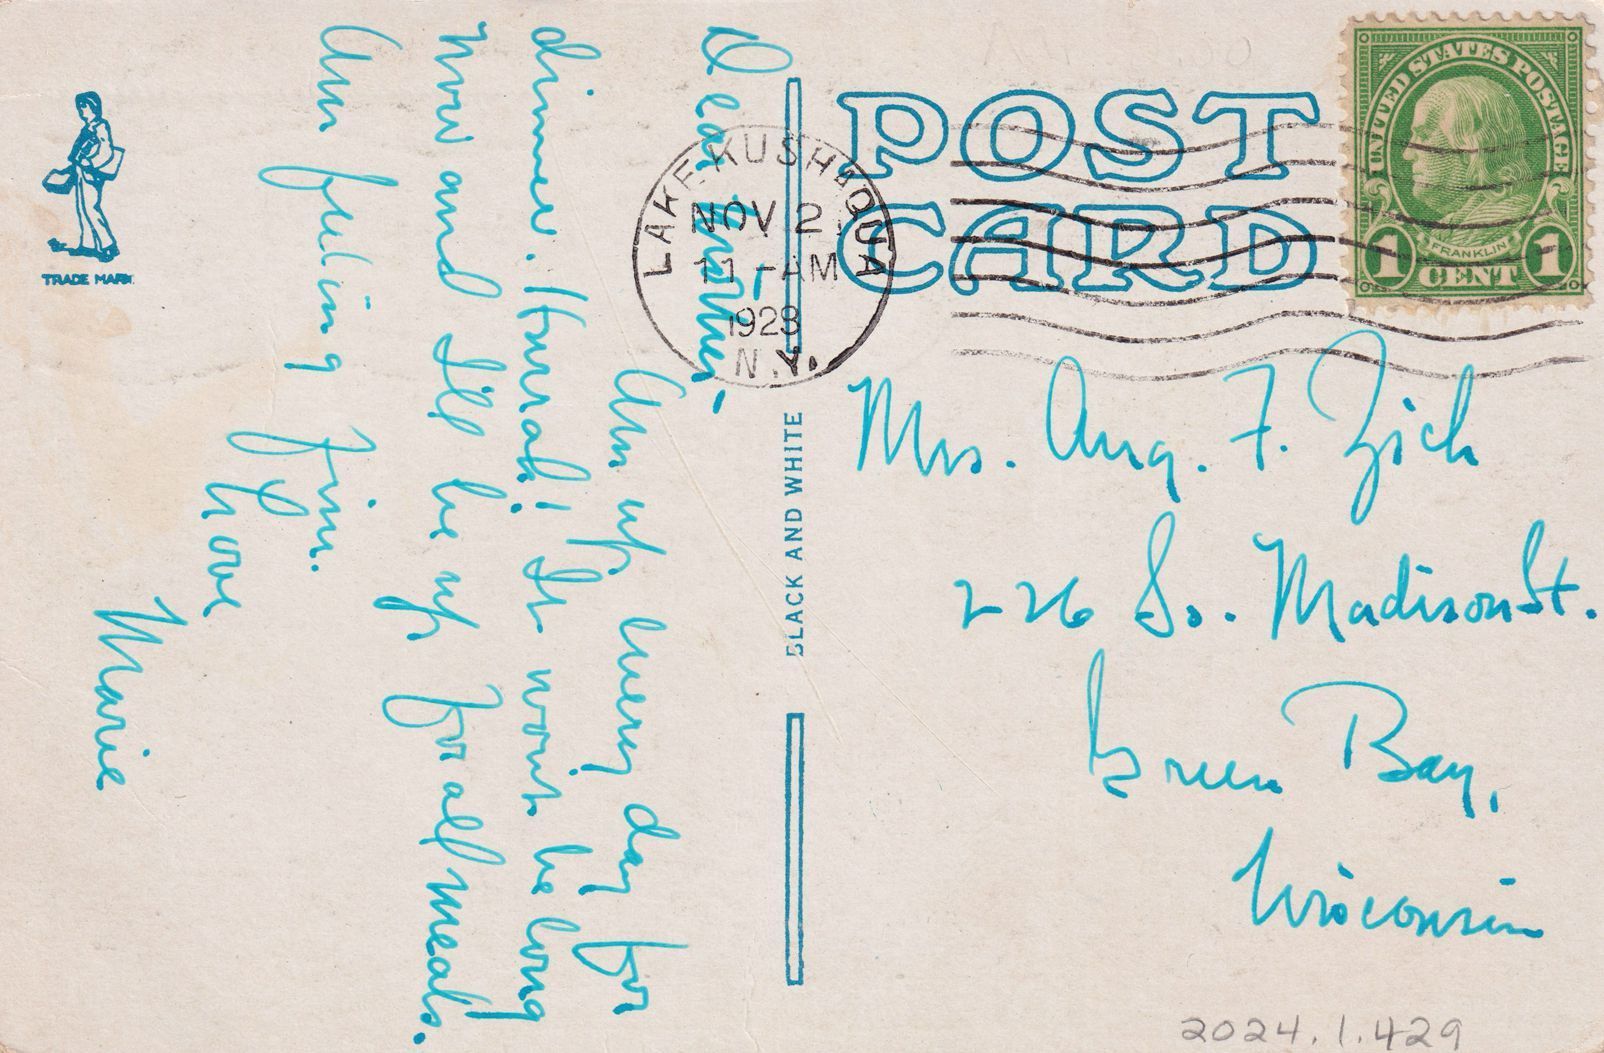 Dear Mother,-
Am up every day for
dinner. Hurrah! It won't be long
now and I'll be up for all meals.
Am feeling fine.
Love
Marie
TRADE MARK
BLACK AND WHITE
POST
CARD
LAKE KUSHAQUA
NOV 2
11-AM
1928
N.Y.
UNITED STATES POSTAGE
FRANKLIN
1 CENT 1
Mrs. Aug. F. Zich
226 So. Madison St.
Green Bay,
Wisconsin
2024.1.429